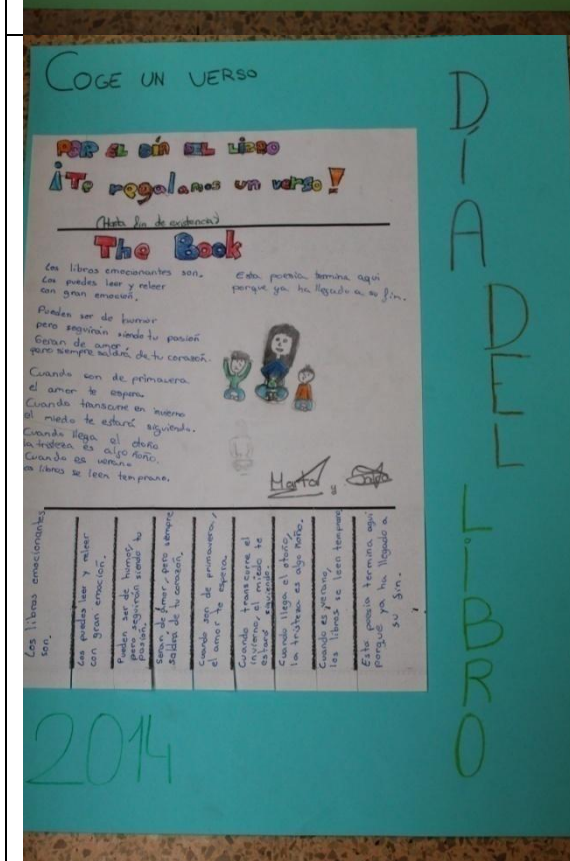 COGE UN VERSO
POR EL DÍA DEL LIBRO
¡Te regalamos un verso!
(Hasta fin de existencias)
The Book
Los libros emocionantes son.
Los puedes leer y releer
con gran emoción.
Pueden ser de humor
pero seguirán siendo tu pasión
Seran de amor,
pero siempre saldrá de tu corazón.
Cuando son de primavera
el amor te espera.
Cuando transcurre en invierno
el miedo te estará siguiendo.
Cuando llega el otoño
la tristeza es algo ñoño.
Cuando es verano
los libros se leen temprano.
Esta poesia termina aqui
porque ya ha llegado a su fin.
Marta
Los libros emocionantes
son.
Los puedes leer y releer
con gran emoción.
Pueden ser de humor,
pero seguirán siendo tu
pasión.
Seran de amor, pero siempre
saldrá de tu corazón.
Cuando son de primavera,
el amor te espera.
Cuando transcurre el
invierno, el miedo te
estará siguiendo.
Cuando llega el otoño,
la tristeza es algo ñoño.
Cuando es verano,
los libros se leen temprano
Esta poesia termina aqui
porque ya ha llegado a
su fin.
DÍA DEL LIBRO
2014